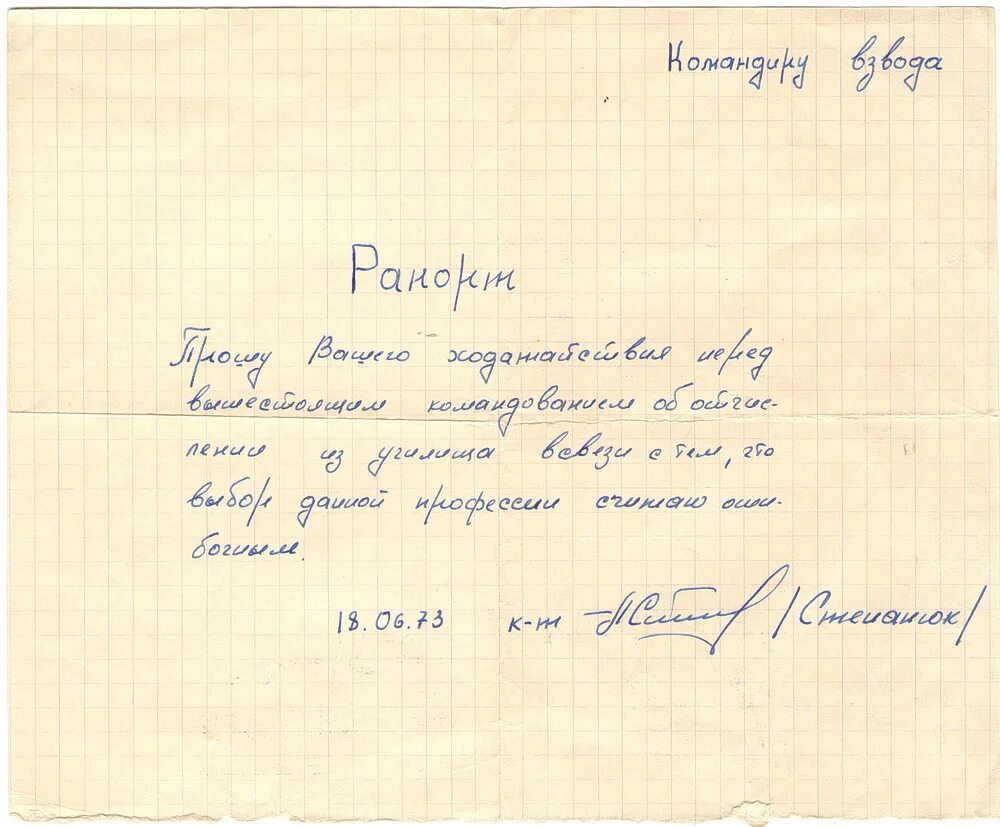 Командиру взвода
Рапорт
Прошу Вашего ходатайствия перед
вышестоящим командованием об отчис-
лении из училища всвези с тем, что
выбор данной профессии считаю оши-
бочным.
18.06.73 к-т /Степанюк/